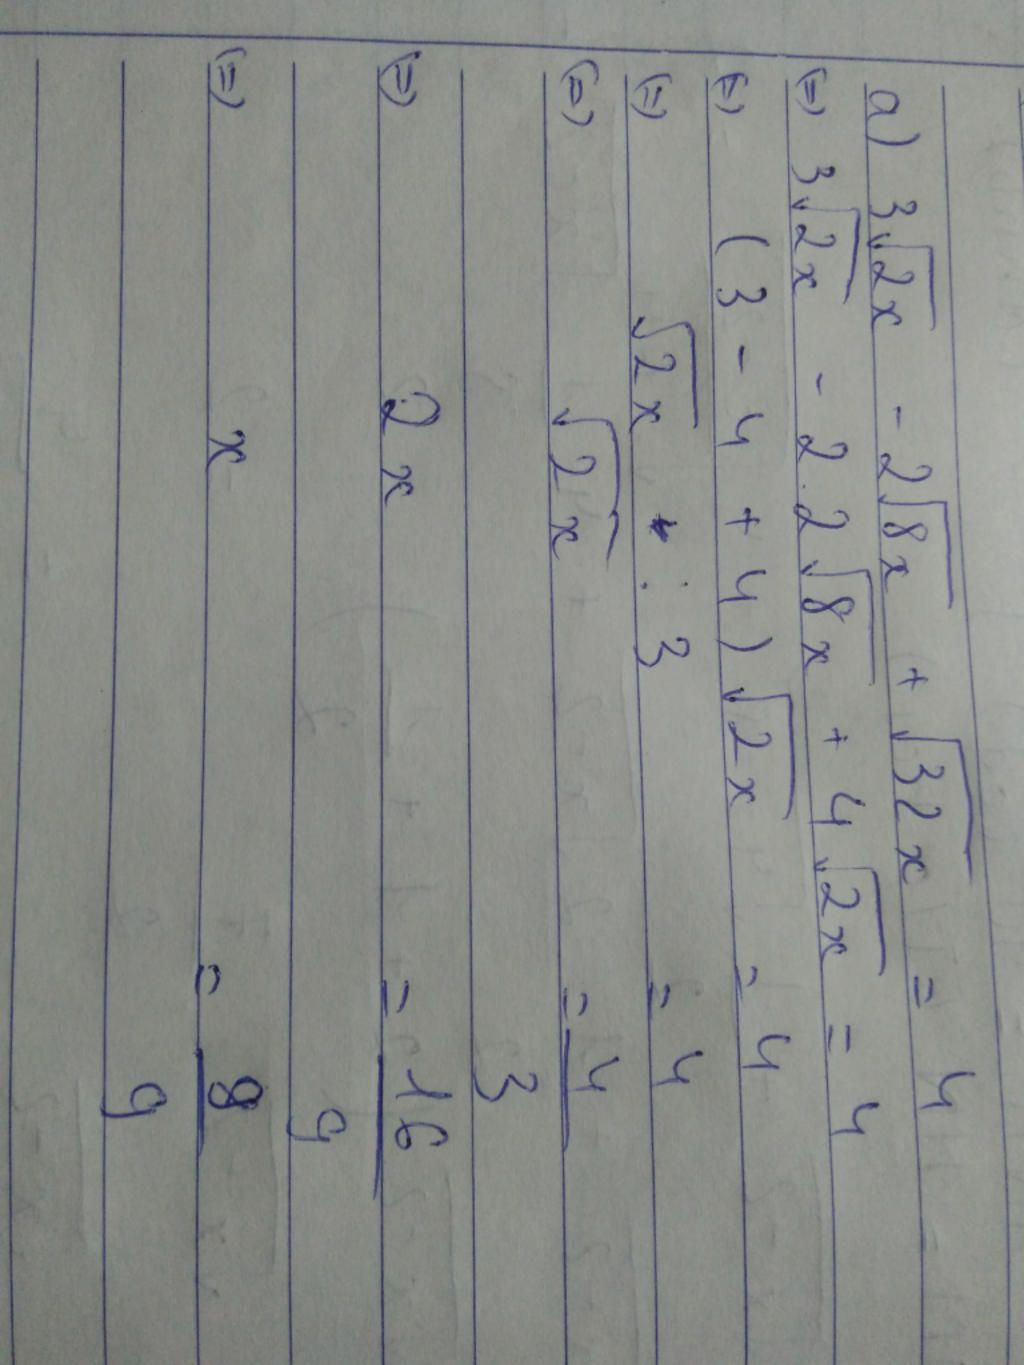 a) 3√2x - 2√8x + √32x = 4
(=) 3√2x - 2.2√8x + 4√2x = 4
(=) (3 - 4 + 4)√2x = 4
(=) √2x . 3 = 4
(=) √2x = 4/3
(=) 2x = 16/9
(=) x = 8/9